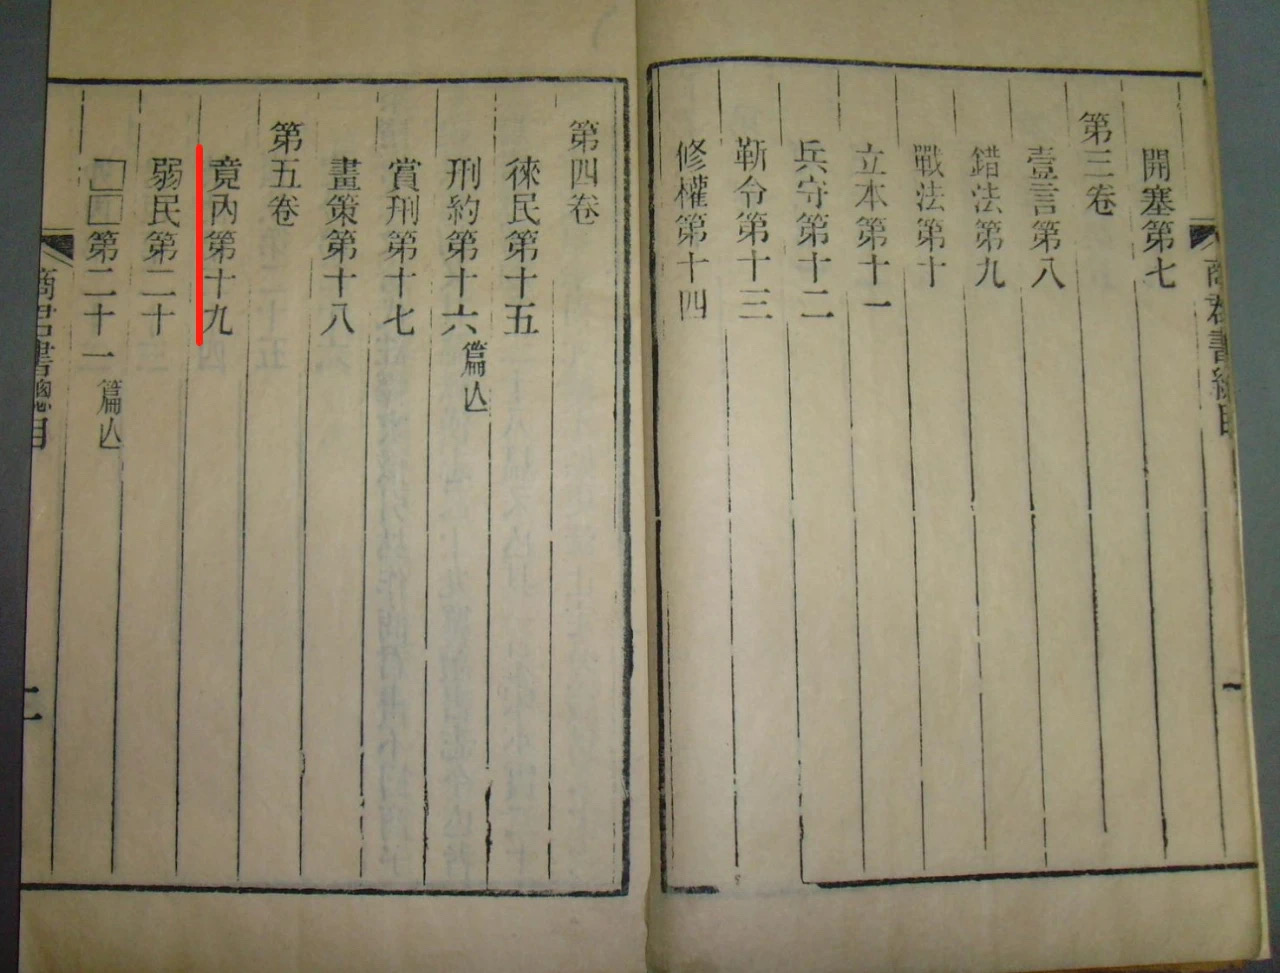 商君書總目
一
開塞第七
第三卷
壹言第八
錯法第九
戰法第十
立本第十一
兵守第十二
靳令第十三
修權第十四
第四卷
徠民第十五
刑約第十六 篇亾
賞刑第十七
畫策第十八
第五卷
竟內第十九
弱民第二十
□□第二十一 篇亾
商君書總目
二